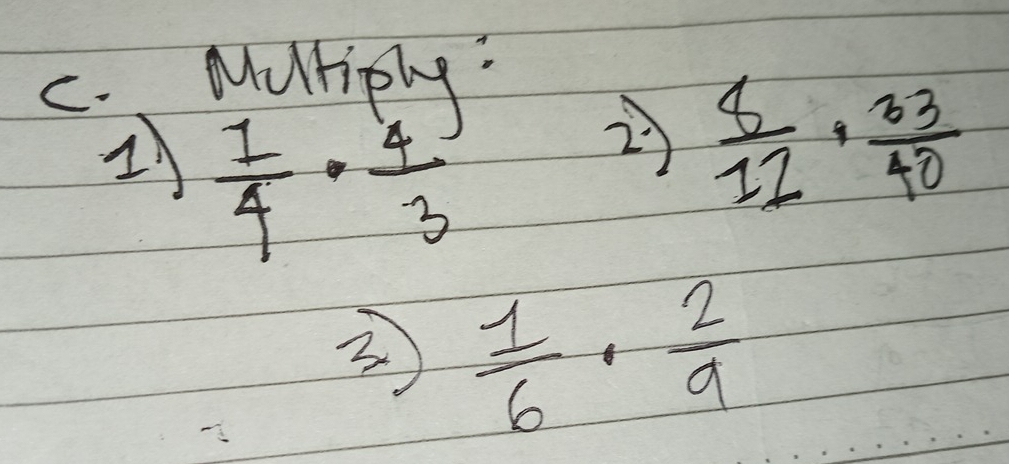 C. Multiply:
1) 1/4 · 4/3 2.) 8/12 · 33/40
3) 1/6 · 2/9